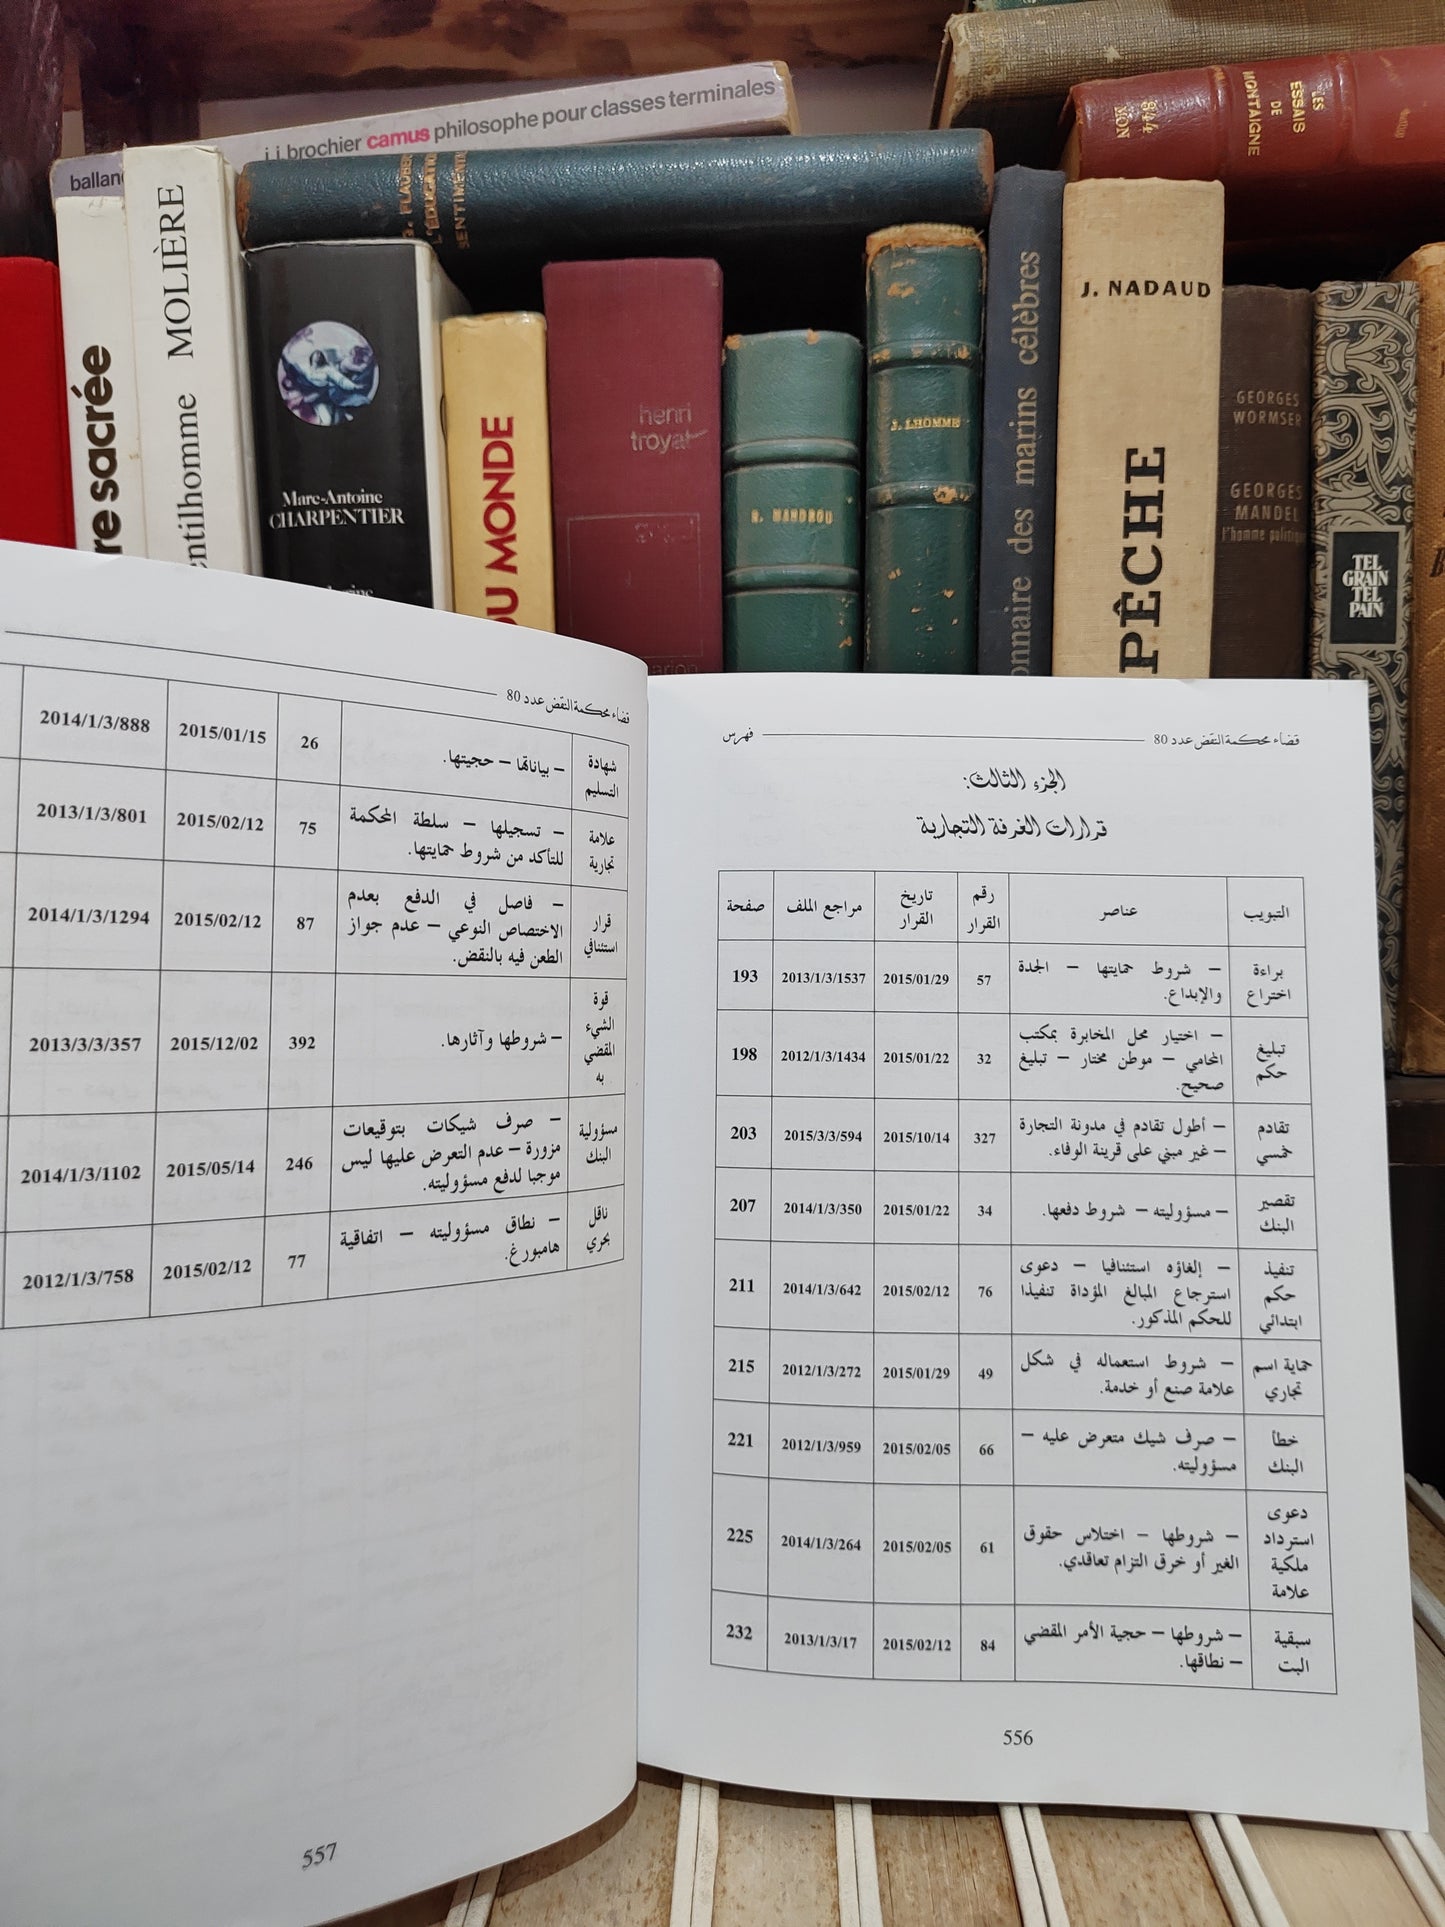 j.j. brochier camus philosophe pour classes terminales
G. FLAUBERT
L'ÉDUCATION
SENTIMENTALE
LES
ESSAIS
DE
MONTAIGNE
MOLIÈRE
Marc-Antoine
CHARPENTIER
DU MONDE
henri
troyat
R. MANDROU
J. LHOMME
marins célèbres
des
J. NADAUD
PÊCHE
GEORGES
WORMSER
GEORGES
MANDEL
l'homme politique
TEL
GRAIN
TEL
PAIN
قضاء محكمة النقض عدد 80
فهرس
الجزء الثالث:
قرارات الغرفة التجارية
التبويب عناصر رقم القرار تاريخ القرار مراجع الملف صفحة
براءة اختراع – شروط حمايتها – الجدة والإبداع. 57 2015/01/29 2013/1/3/1537 193
تبليغ حكم – اختيار محل المخابرة بمكتب المحامي – موطن مختار – تبليغ صحيح. 32 2015/01/22 2012/1/3/1434 198
تقادم خمسي – أطول تقادم في مدونة التجارة – غير مبني على قرينة الوفاء. 327 2015/10/14 2015/3/3/594 203
تقصير البنك – مسؤوليته – شروط دفعها. 34 2015/01/22 2014/1/3/350 207
تنفيذ حكم ابتدائي – إلغاؤه استئنافيا – دعوى استرجاع المبالغ المؤداة تنفيذا للحكم المذكور. 76 2015/02/12 2014/1/3/642 211
حماية اسم تجاري – شروط استعماله في شكل علامة صنع أو خدمة. 49 2015/01/29 2012/1/3/272 215
خطأ البنك – صرف شيك متعرض عليه – مسؤوليته. 66 2015/02/05 2012/1/3/959 221
دعوى استرداد ملكية علامة – شروطها – اختلاس حقوق الغير أو خرق التزام تعاقدي. 61 2015/02/05 2014/1/3/264 225
سبقية البت – شروطها – حجية الأمر المقضي – نطاقها. 84 2015/02/12 2013/1/3/17 232
556
قضاء محكمة النقض عدد 80
شهادة التسليم – بياناتها – حجيتها. 26 2015/01/15 2014/1/3/888
علامة تجارية – تسجيلها – سلطة المحكمة للتأكد من شروط حمايتها. 75 2015/02/12 2013/1/3/801
قرار استئنافي – فاصل في الدفع بعدم الاختصاص النوعي – عدم جواز الطعن فيه بالنقض. 87 2015/02/12 2014/1/3/1294
قوة الشيء المقضي به – شروطها وآثارها. 392 2015/12/02 2013/3/3/357
مسؤولية البنك – صرف شيكات بتوقيعات مزورة – عدم التعرض عليها ليس موجبا لدفع مسؤوليته. 246 2015/05/14 2014/1/3/1102
ناقل بحري – نطاق مسؤوليته – اتفاقية هامبورغ. 77 2015/02/12 2012/1/3/758
557